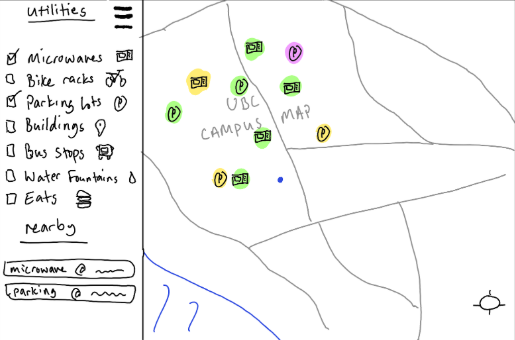 utilities
Microwaves
Bike racks
Parking lots P
Buildings
Bus stops
Water Fountains
Eats
nearby
microwave @
parking @
P
P
P
UBC
MAP
CAMPUS
P
P